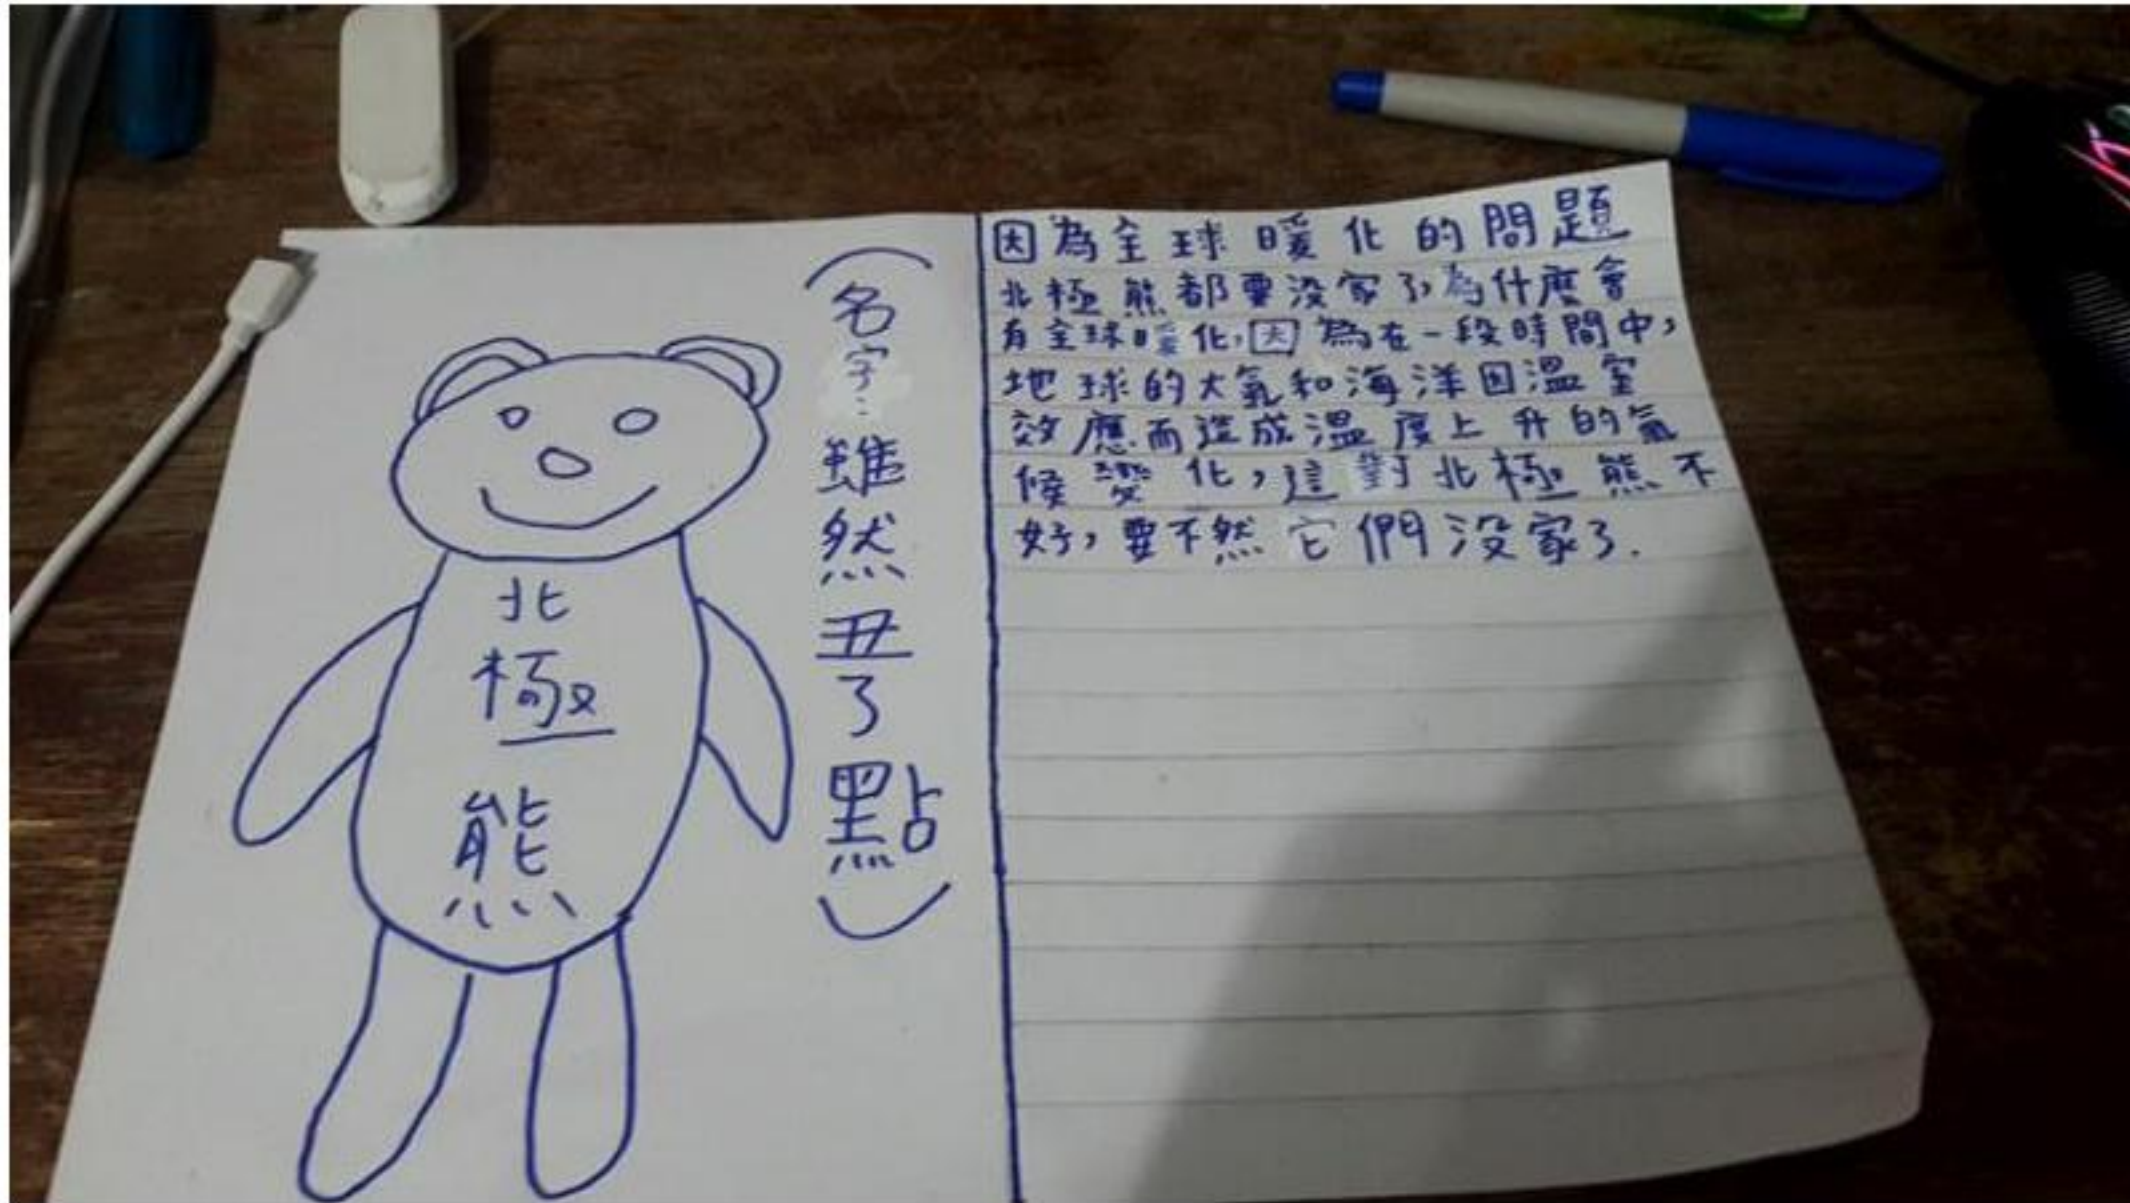 北
極
熊
(名字:雖然丑了點)
因為全球暖化的問題
北極熊都要没家了,為什麼會
有全球暖化,因為在一段時間中,
地球的大氣和海洋因溫室
效應而造成溫度上升的氣
候變化,這對北極熊不
好,要不然它們没家了.